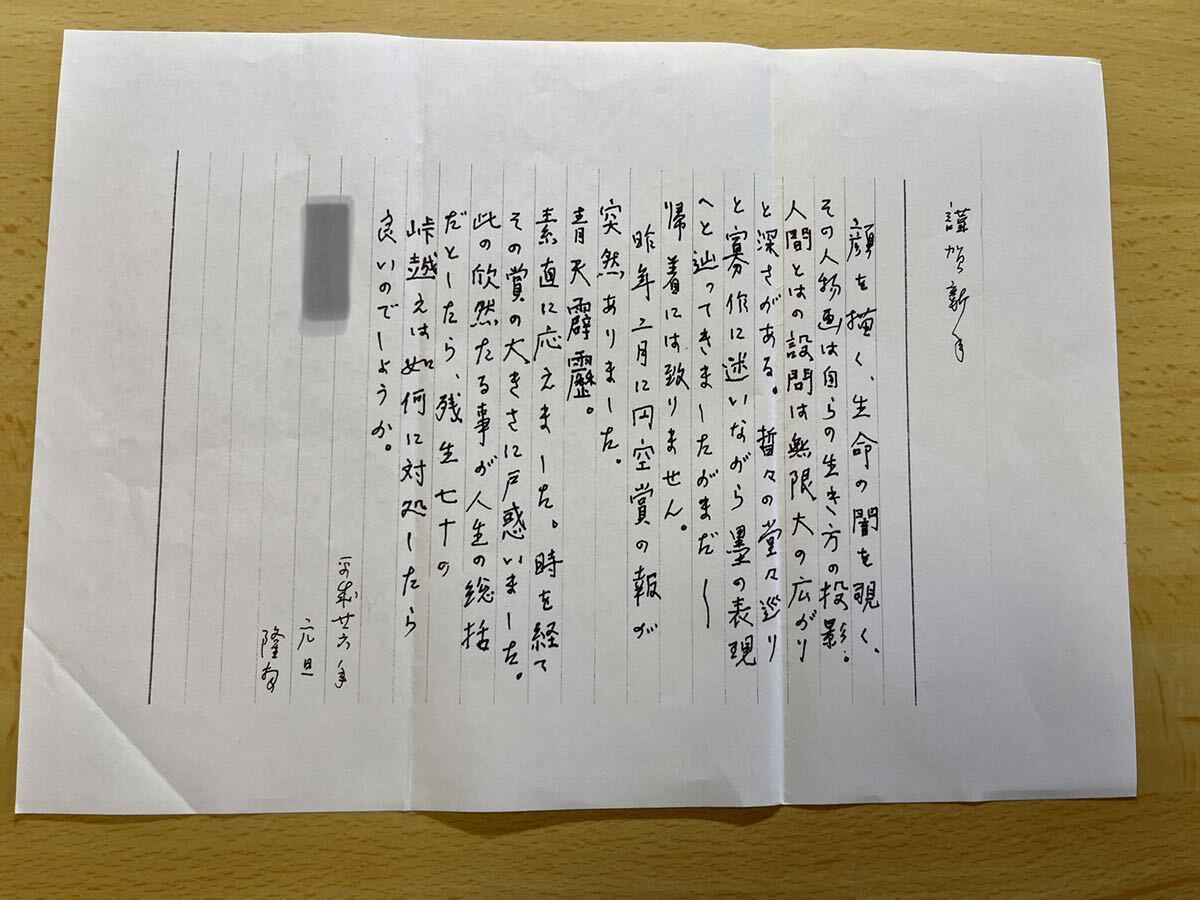 謹賀新年
顔を描く、生命の闇を覗く、
その人物画は自らの生き方の投影。
人間とはの設問は無限大の広がり
と深さがある。暫々の堂々巡り
と寡作に迷いながら墨の表現
へと辿ってきましたがまだ〳〵
帰着には致りません。
昨年二月に円空賞の報が
突然ありました。
青天霹靂。
素直に応えました。時を経て
その賞の大きさに戸惑いました。
此の欣然たる事が人生の総括
だとしたら、残生七十の
峠越えは如何に対処したら
良いのでしょうか。
平成廿六年
元旦
隆